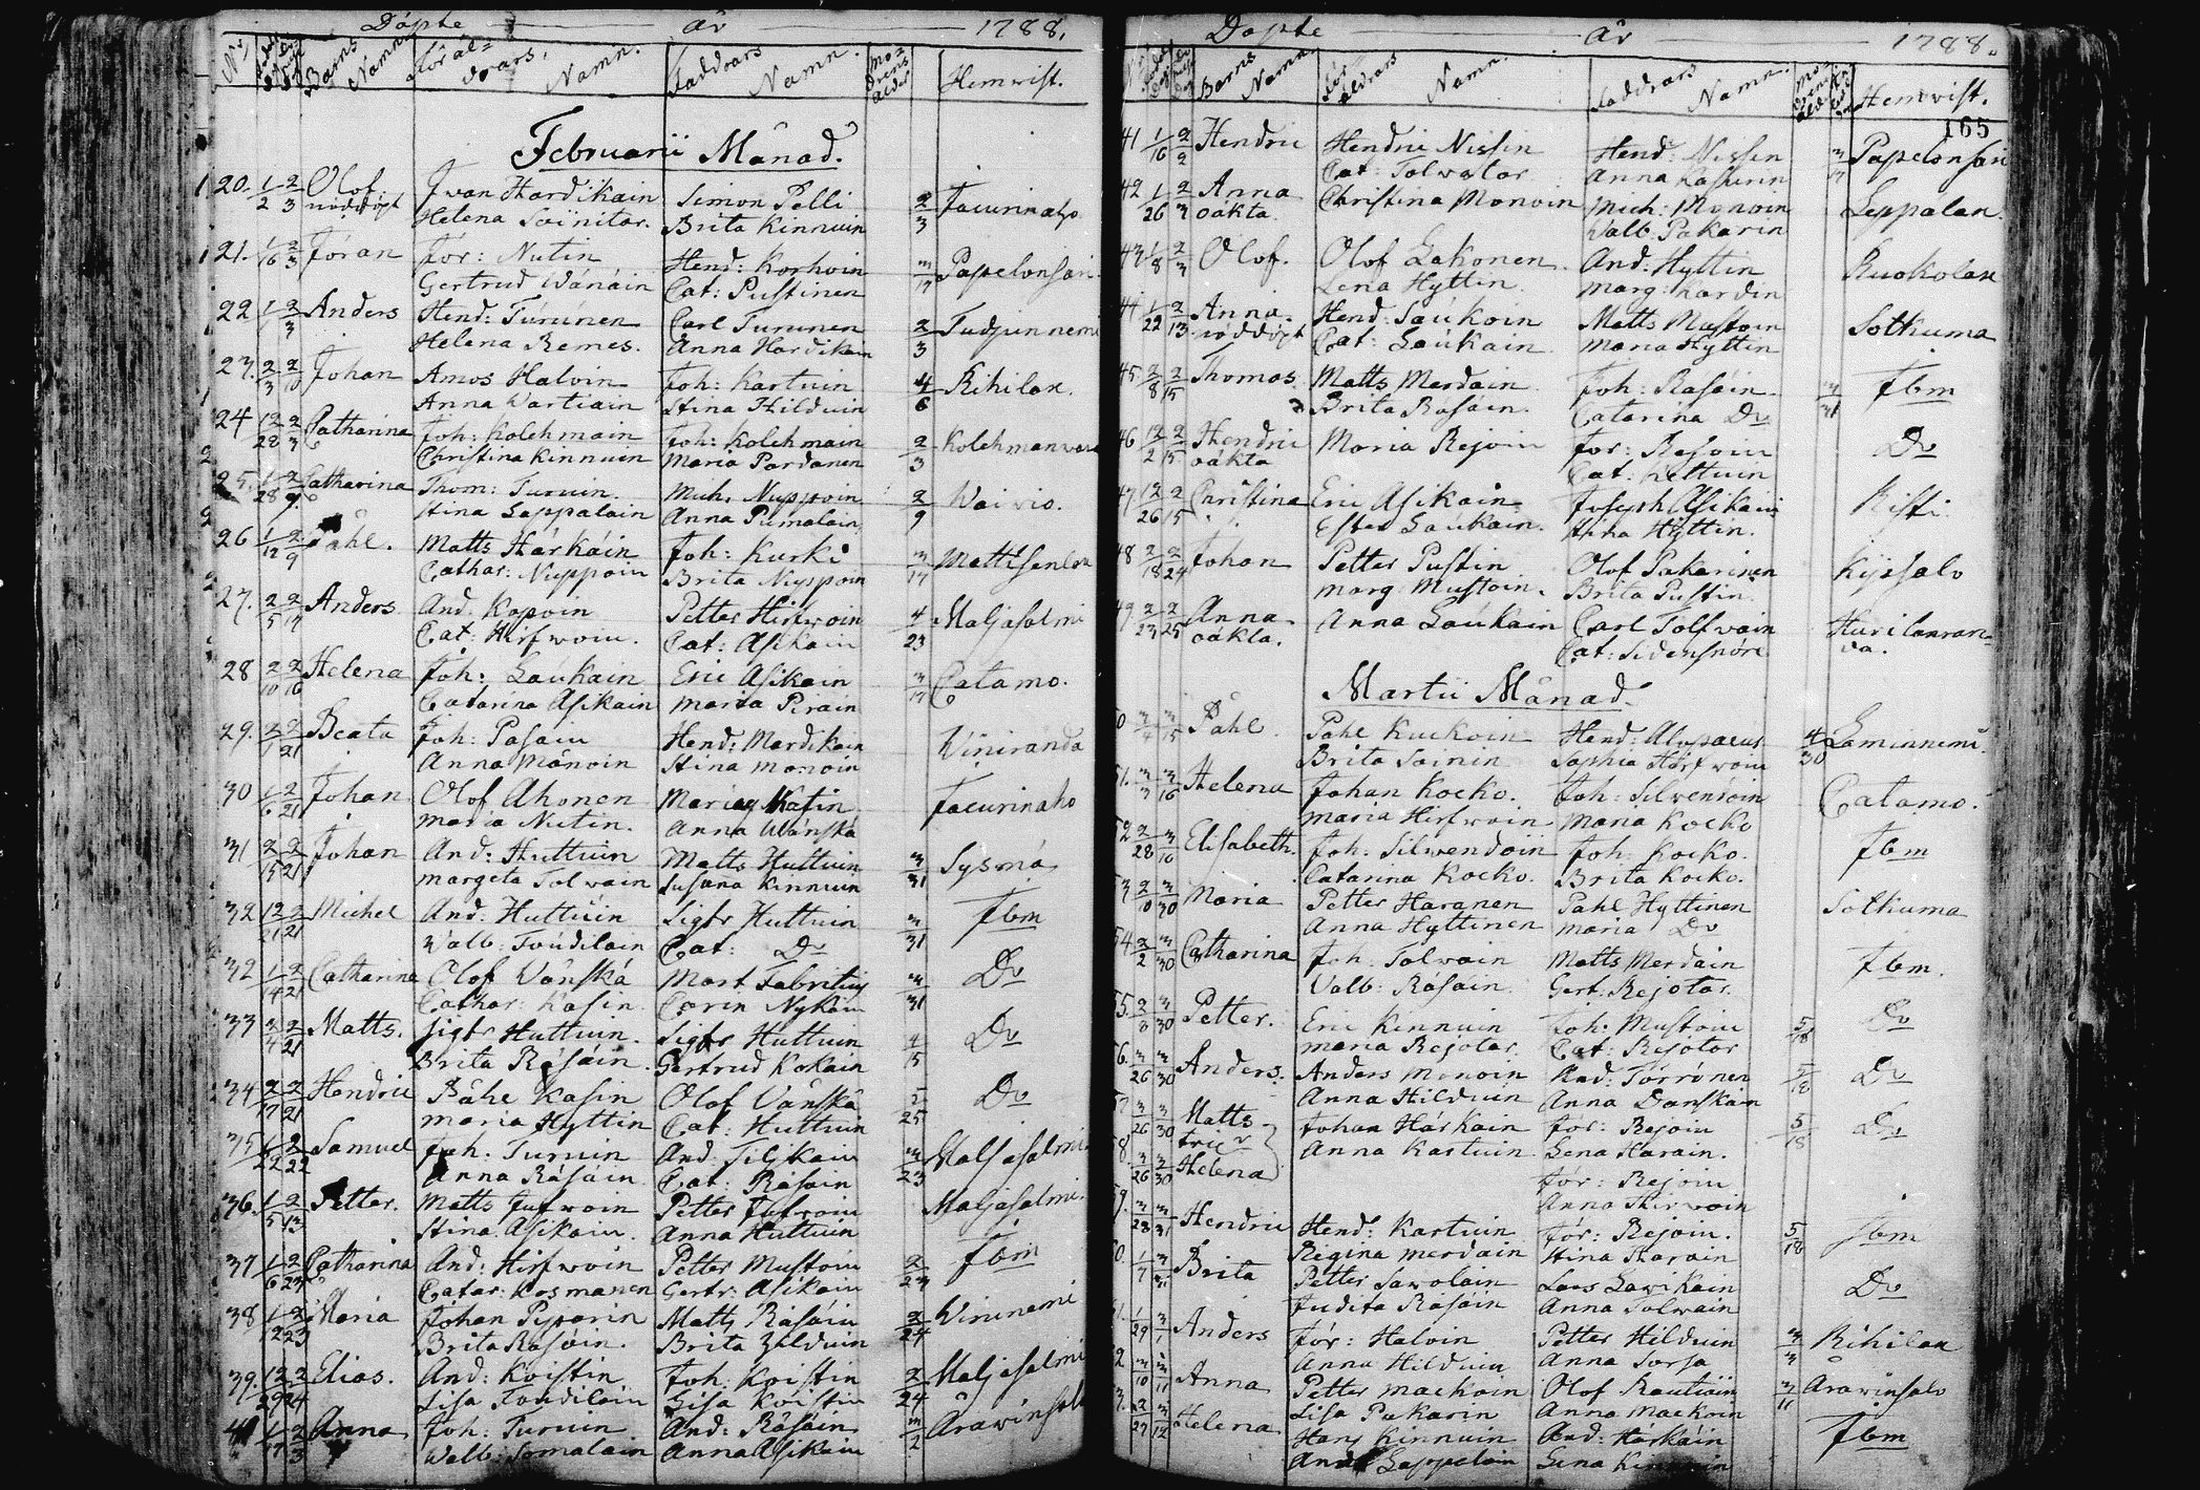 Döpte år 1788.
No Barns Namn Föräldrars Namn. Faddrars Namn. Modrens ålder Hemvist.
Februarii Månad.
20. 1/2 2/3 Olof. Ivan Hardikain Simon Pelli 2/3 Taurinaho
nöddöpt Helena Soinitar. Brita Kinnuin
21. 1/16 2/3 Jöran Jör: Nutin Hend: Korhoin 3/17 Papelonsari
Gertrud Wänäin Cat: Pustinen
22 2/3 Anders Hend: Turunen Carl Turunen 2/3 Tudjunnemi
Helena Remes. Anna Hardikain
23. 2/3 2/10 Johan Amos Halvin Joh: Kartuin 4/6 Rihilax.
Anna Wartiain Stina Hilduin
24 12/28 2/3 Catharina Joh: Kolehmain Joh: Kolehmain 2/3 Kolehmanvara
Christina Kinnuin Maria Pardanen
25. 1/28 2/9 Catharina Thom: Turuin. Mich. Nuppoin 2/9 Waivio.
Stina Lappalain Anna Pumalain
26 1/12 2/9 Påhl. Matts Härkäin Joh: Kurki 3/17 Mattisenlax
Cathar: Nuppoin Brita Nuppoin
27. 2/5 2/17 Anders And. Kopoin Petter Hirfwoin 4/23 Maljasalmi
Cat: Hirfwoin. Cat: Asikain
28 2/10 2/16 Helena Joh: Laukain Eric Asikain 3/17 Catamo.
Catarina Asikain Maria Pirain
29. 2/1 2/21 Beata Joh: Pasain Hend: Mardikain Winiranda
Anna Månoin Stina Monoin
30 1/6 2/21 Johan Olof Ahonen Matin Taurinaho
Maria Nutin. Anna Wänskä
31 2/15 2/21 Johan And: Huttuin Matts Huttuin 3/31 Sysmä
Margeta Tolvain Susana Kinnuin
32 12/21 2/21 Michel And: Huttuin Sigfr Huttuin 3/31 Ibm
Walb: Toudilain Cat: Do
32 1/14 2/21 Catharina Olof Wänskä Mart Fabritius 3/31 Do
Cathar: Kasin Carin Nykain
33 2/4 2/21 Matts. Sigfr Huttuin. Sigfr Huttuin 4/15 Do
Brita Räsäin. Gertrud Kokain
34 2/17 2/21 Hendric Påhl Kasin Olof Wänskä 5/25 Do
Maria Hyttin Cat: Huttuin
35 1/22 2/22 Samuel Joh: Turuin And: Tiljkain 3/23 Maljasalmi
Anna Räsäin Cat: Räsäin
36. 1/5 2/13 Petter. Matts Jufwoin Petter Jufwoin Maljasalmi.
Stina Asikain. Anna Huttuin
37 1/6 2/23 Catharina And: Hirfwoin Petter Mustoin 2/23 Ibm
Catar: Kosmanen Gertr: Asikain
38 1/12 2/23 Maria Johan Piparin Matts Räsäin 2/24 Wininemi
Brita Räsäin. Brita Hilduin
39. 12/29 2/24 Elias. And: Koistin Joh: Koistin 2/24 Maljasalmi
Lisa Toudilain Lisa Koistin
40 1/17 2/3 Anna Joh: Turuin And: Räsäin 3/2 Arawinsalo
Walb: Somalain Anna Asikain
Döpte år 1788.
Barns Namn Föräldrars Namn. Faddrars Namn. Modrens ålder Hemvist.
165
41 1/16 2/2 Hendric Hendric Nissin Hend: Nissen 3/17 Papelonsari
Cat: Tolvatar. Anna Kasurin
42 1/26 2/3 Anna Christina Monoin Mich: Monoin Leppälax.
oäkta. Walb. Pakarin
43 1/8 2/3 Olof. Olof Lakonen And: Hyttin Kuokolax
Lena Hyttin. Marg: Kardin
44 1/22 2/13 Anna. Hend: Laukoin Matts Mustoin Sotkuma
nöddöpt Cat: Laukain Maria Hyttin
45. 2/8 2/15 Thomas. Matts Merdain Joh: Räsäin 3/31 Ibm
Brita Räsäin. Catarina Do
46 12/2 2/15 Hendric Maria Rejoin Jör: Rejoin Do
oäkta Cat. Kettuin
47. 12/26 2/15 Christina Eric Asikain Joseph Asikain Risti
Ester Laukain. Stina Hyttin.
48 2/18 2/24 Johan Petter Pustin Olof Pakarinen Kijssalo
Marg: Mustoin. Brita Pustin
49 2/23 2/25 Anna Anna Laukain Carl Tolfvain Hurilanran=
oäkta. Cat: Sidensnöre da.
Martii Månad.
50 3/4 3/15 Påhl Påhl Kuckoin Hend: Alopaeus 4/30 Laminnemi
Brita Soinin Sophia Hirfwoin
51. 3/3 3/16 Helena Johan Kocko. Joh: Silvensöin Catamo.
Maria Hirfwoin Maria Kocko
52 2/28 3/16 Elisabeth. Joh. Silwendoin Joh: Kocko. Ibm
Catarina Kocko. Brita Kocko.
53 2/10 3/30 Maria Petter Haranen Påhl Hyttinen Sotkuma
Anna Hyttinen Maria Do
54 2/2 3/30 Catharina Joh. Tolvain Matts Merdain Ibm.
Valb: Räsäin. Gert. Rejotar.
55. 2/8 3/30 Petter. Eric Kinnuin Joh: Mustoin 5/18 Do
Maria Rejotar. Cat: Rejotar
56. 3/26 3/30 Anders. Anders Monoin And: Törrönen 5/18 Do
Anna Hilduin Anna Danskain
57 3/26 3/30 Matts Johan Härkain Jör: Rejoin 5/18 Do
Anna Kartuin Lena Harain.
58. 3/26 3/30 Helena Jör: Rejoin
Anna Hirwoin
59. 3/28 3/31 Hendric Hend: Kartuin Jör: Rejoin. 5/18 Ibm
Regina Merdain Stina Harain
60. Brita Petter Sawolain Lars Lawikain Do
Judita Räsäin Anna Tolwain
61. 1/29 3/1 Anders Jör: Halvin Petter Hilduin 3/3 Rihilax
Anna Hilduin Anna Sorsa
62 3/10 3/11 Anna Petter Mackoin Olof Rautiain 3/11 Arawinsalo
Lisa Pakarin Anna Mackoin
63. 2/27 3/12 Helena Hans Kinnuin And: Härkäin Ibm
Lappalain Lena